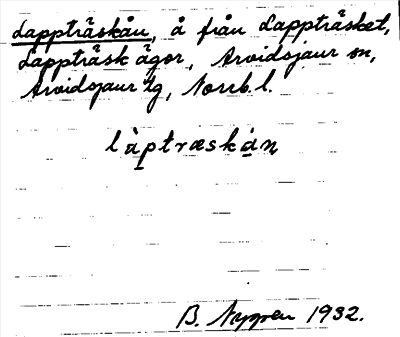 Lappträskån, å från Lappträsket,
Lappträsk ägor, Arvidsjaur sn,
Arvidsjaur tg, Norrb. l.
là̱ptræskȧ̱n
B. Nygren 1932.